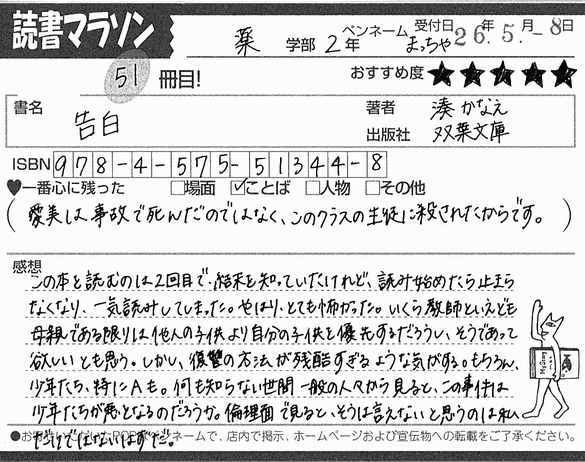 読書マラソン
薬 学部 2年 ペンネーム まっちゃ 受付日 26年 5月 -8日
51 冊目! おすすめ度 ★★★★★
書名 告白
著者 湊かなえ
出版社 双葉文庫
ISBN 978-4-575-51344-8
♥一番心に残った □場面 ☑ことば □人物 □その他
( 愛美は事故で死んだのではなく、このクラスの生徒に殺されたからです。 )
感想
この本を読むのは2回目で、結末を知っていたけれど、読み始めたら止まら
なくなり、一気読みしてしまった。やはり、とても怖かった。いくら教師といえども
母親である限りは他人の子供より自分の子供を優先するだろうし、そうであって
欲しいとも思う。しかし、復讐の方法が残酷すぎるような気がする。もちろん、
少年たち、特にAも。何も知らない世間一般の人々から見ると、この事件は
少年たちが悪となるのだろうか。倫理面で見ると、そうは言えないと思うのは私
だけではないはずだ。
POP ペンネームで、店内で掲示、ホームページおよび宣伝物への転載をご了承ください。